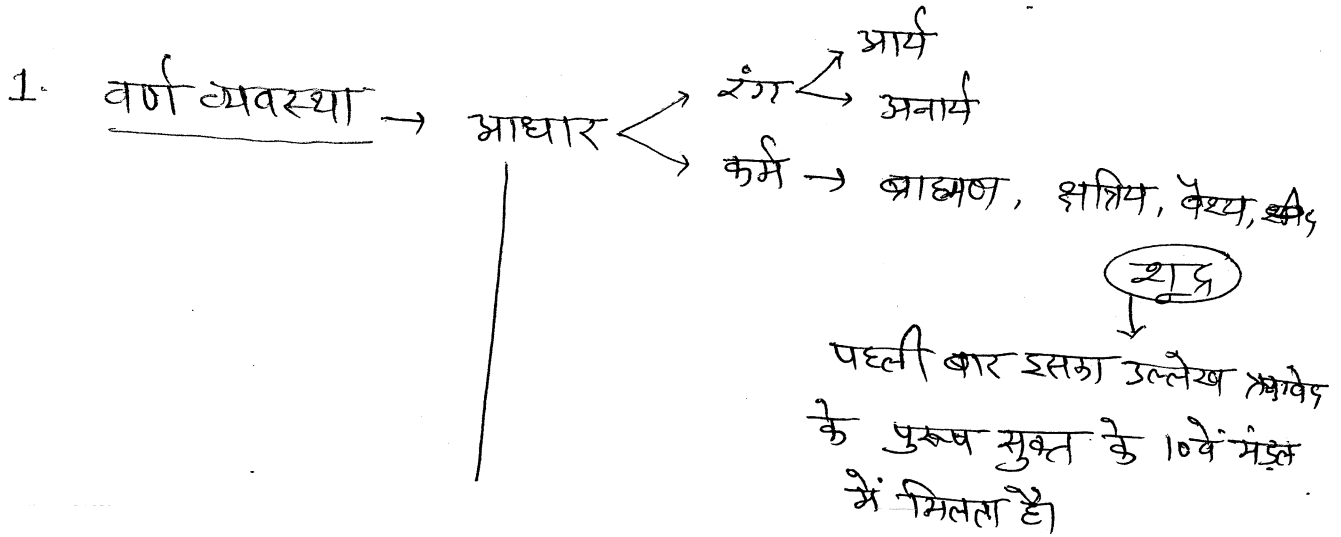 आर्य
1. वर्ण व्यवस्था → आधार रंग अनार्य
कर्म → ब्राह्मण, क्षत्रिय, वैश्य,
शूद्र
पहली बार इसका उल्लेख ऋग्वेद
के पुरूष सुक्त के 10वें मंडल
में मिलता है।